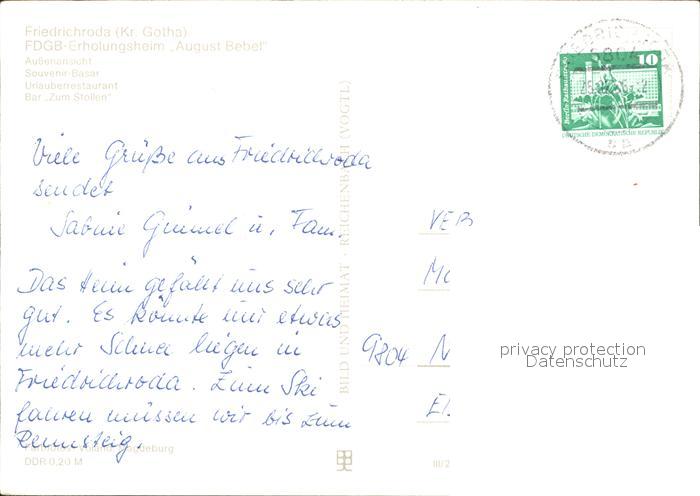 Friedrichroda (Kr. Gotha)
FDGB-Erholungsheim „August Bebel"
Außenansicht
Souvenir-Basar
Urlauberrestaurant
Bar „Zum Stollen"
10
Berlin
DEUTSCHE DEMOKRATISCHE REPUBLIK
Viele Grüße aus Friedrichroda
sendet
Sabine Grimmel u. Fam.
Das Heim gefällt uns sehr
gut. Es könnte nur etwas
mehr Schnee liegen in
Friedrichroda. Zum Ski
fahren müssen wir bis zum
Rennsteig.
BILD UND HEIMAT · REICHENBACH (VOGTL)
9804
privacy protection
Datenschutz
Farbfotos: Voland, Magdeburg
DDR 0,20 M